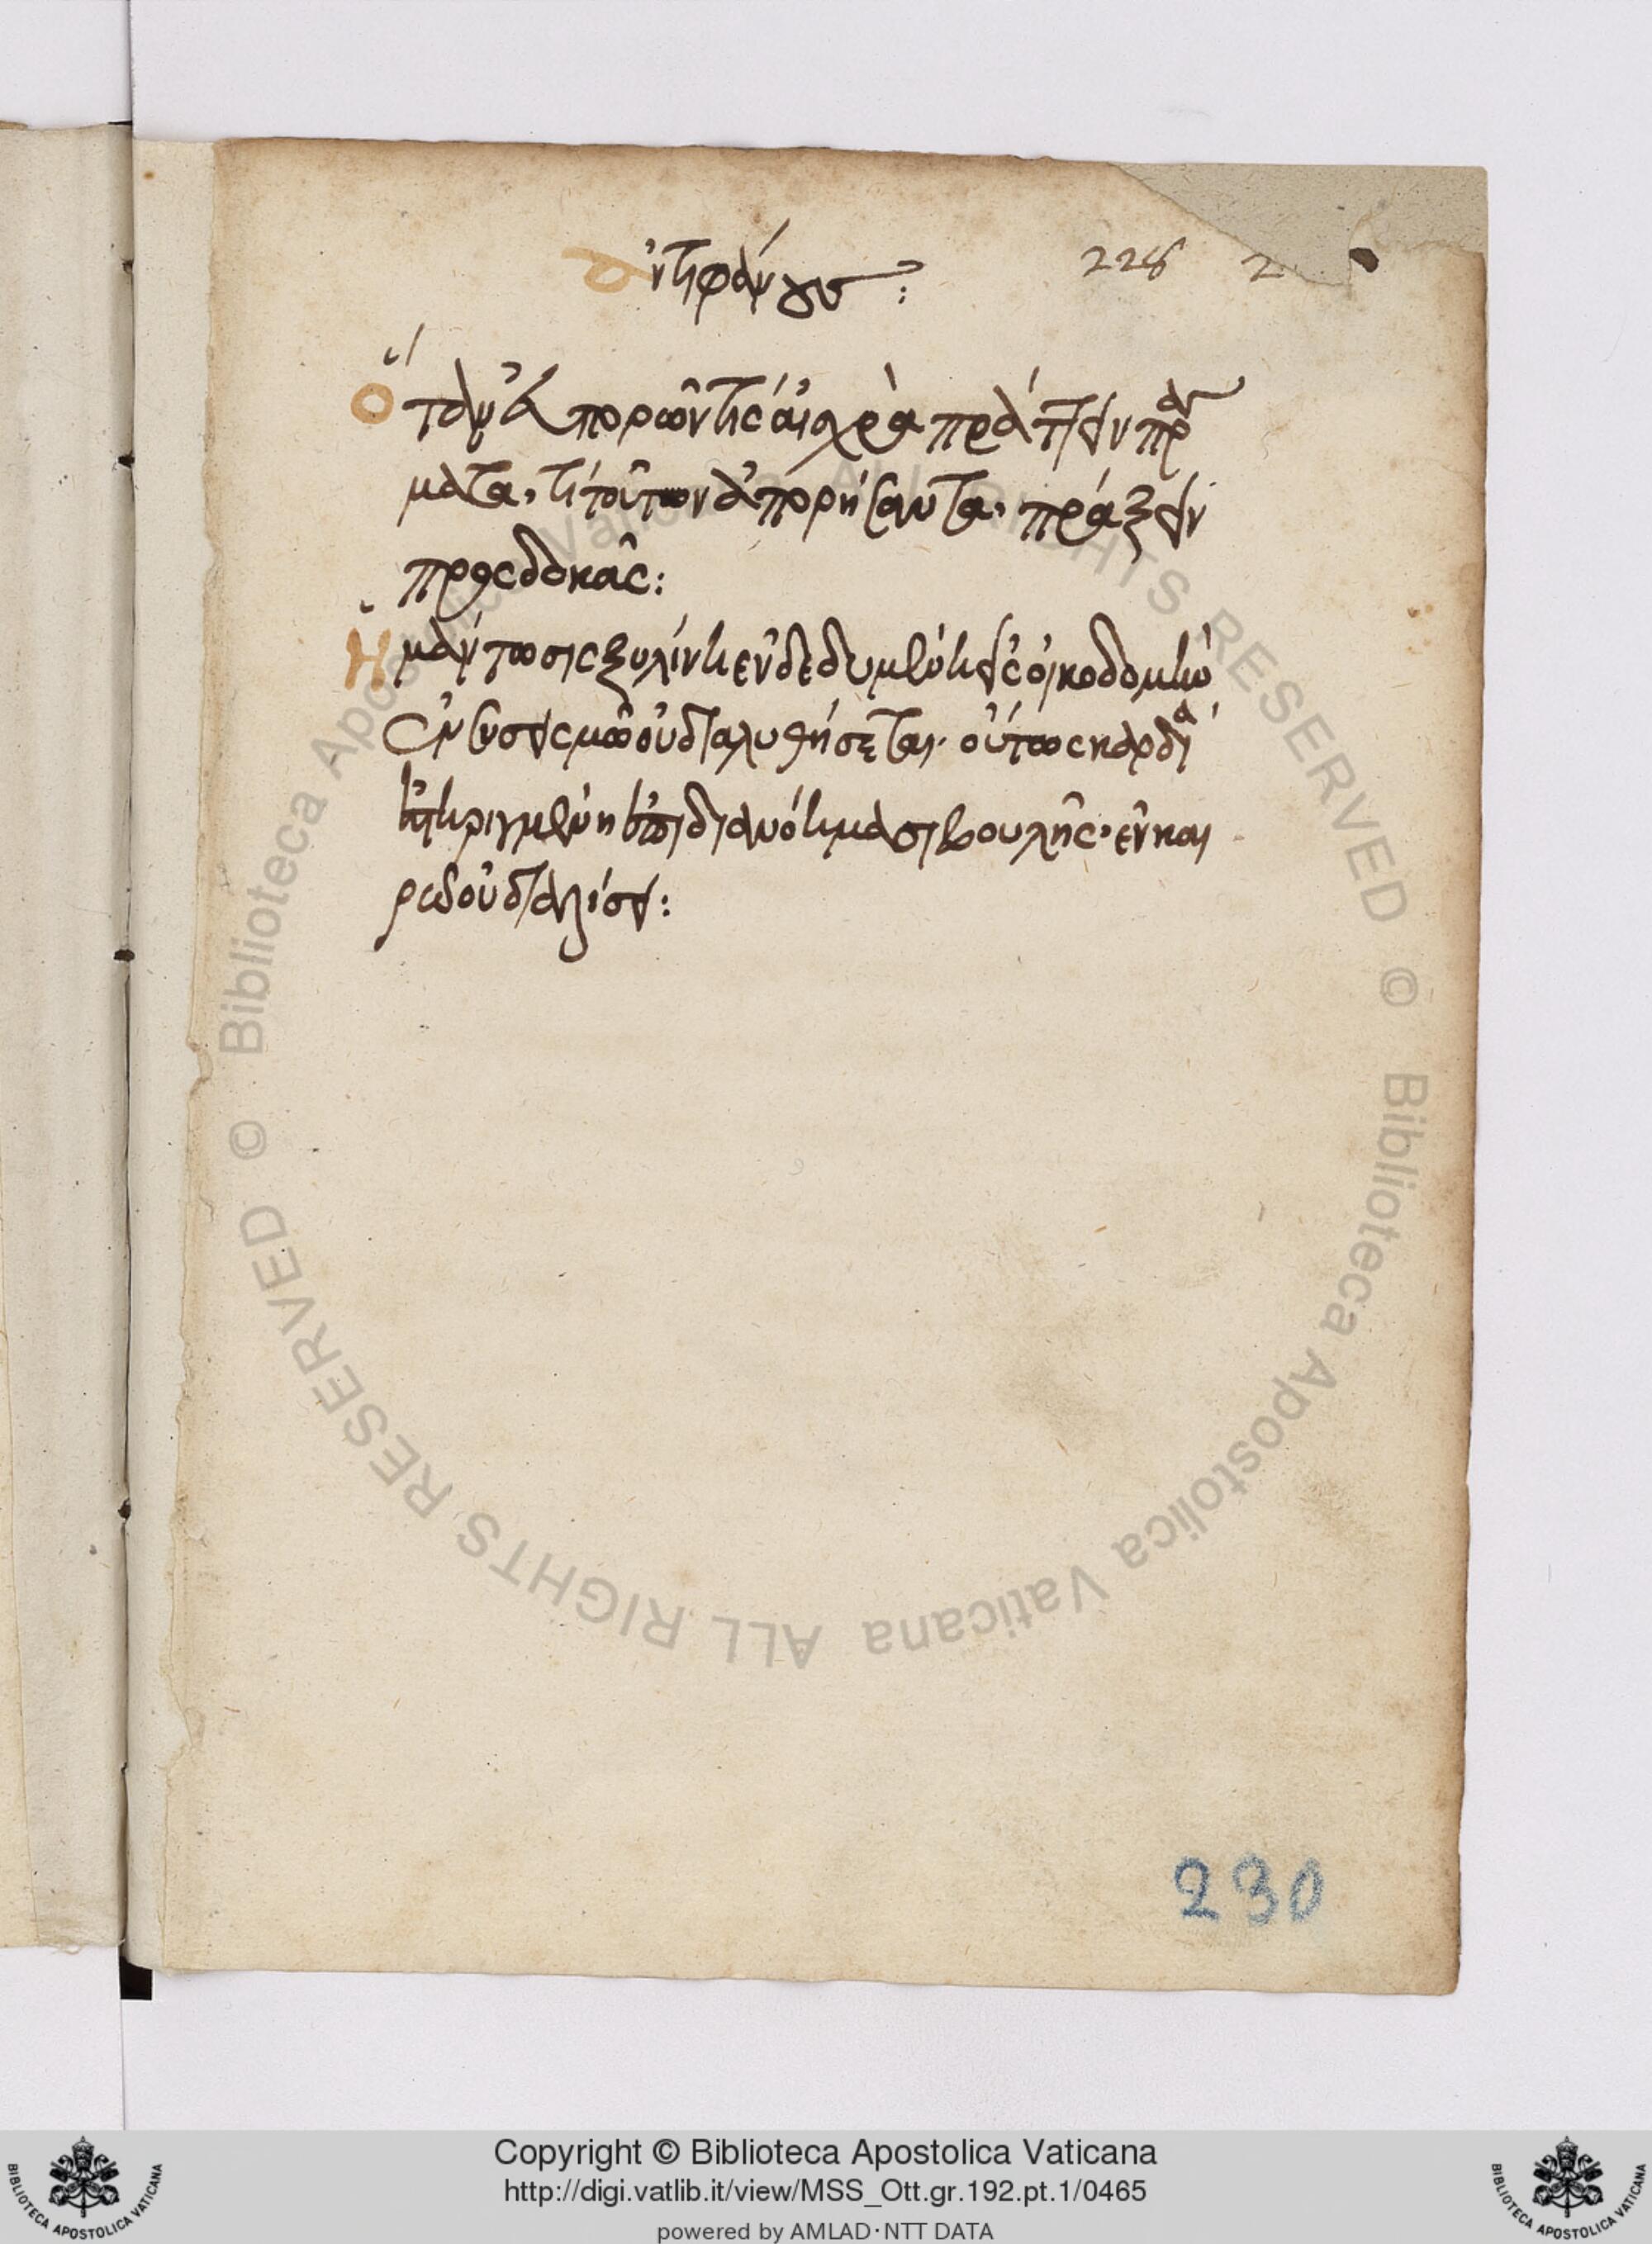 ἀντιφάνους :
228 2
ὅταν ἀπορῶν τίς αἰσχρὰ πράττειν πρά
ματα, τί τοῦτον ἀπορήσαντα, πράξειν
προσδοκᾶς :
ἱμάντωσις ξυλίνη ἐνδεδυμένη εἰς οἰκοδομὴν
ἐν συσεισμῶ οὐ διαλυθήσεται. οὕτως καρδία
ἐστηριγμένη ἐπὶ διανοήμασι βουλῆς, ἐν και
ρῶ οὐ δειλιάσει :
230
© Biblioteca Apostolica Vaticana ALL RIGHTS RESERVED © Biblioteca Apostolica Vaticana ALL RIGHTS RESERVED
Copyright © Biblioteca Apostolica Vaticana
http://digi.vatlib.it/view/MSS_Ott.gr.192.pt.1/0465
powered by AMLAD·NTT DATA
BIBLIOTECA APOSTOLICA VATICANA
BIBLIOTECA APOSTOLICA VATICANA